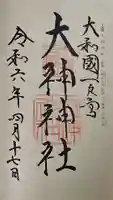 大和國一之宮
大神神社
令和六年四月十七日